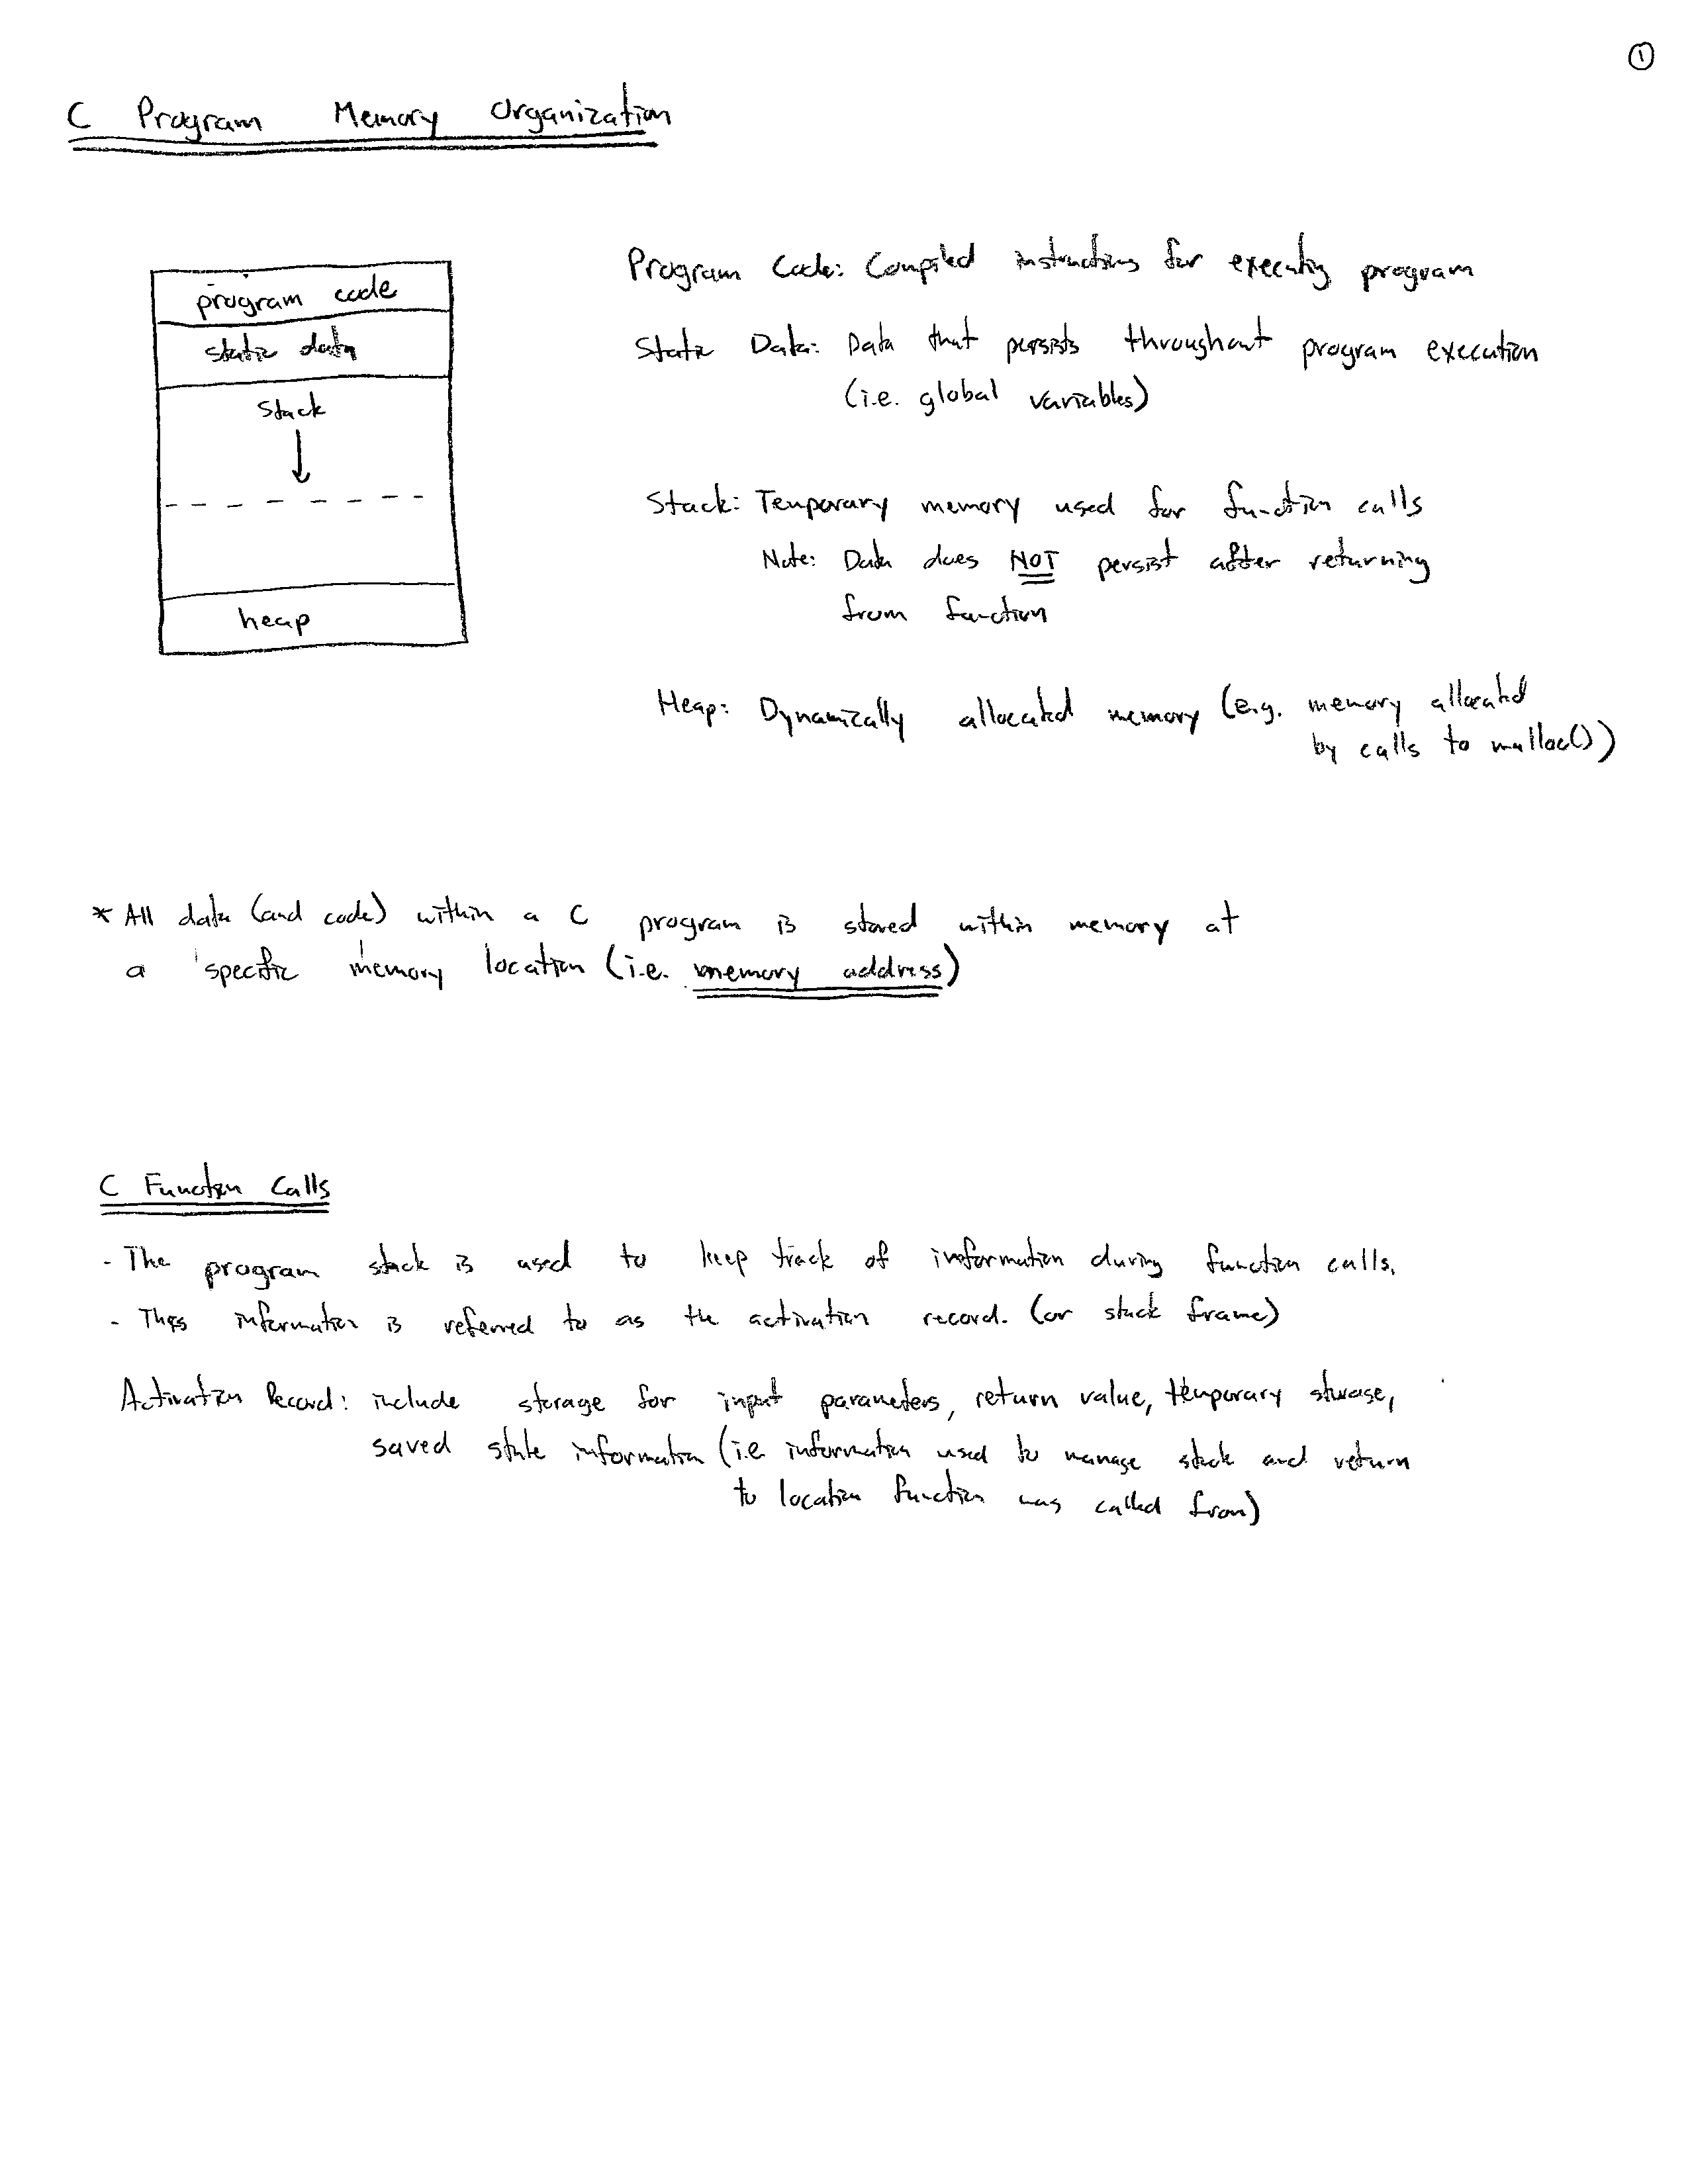 ①
C Program Memory Organization
program code
static data
stack
heap
Program Code: Compiled instructions for executing program
Static Data: Data that persists throughout program execution
(i.e. global variables)
Stack: Temporary memory used for function calls
Note: Data does NOT persist after returning
from function
Heap: Dynamically allocated memory (e.g. memory allocated
by calls to malloc())
* All data (and code) within a C program is stored within memory at
a specific memory location (i.e. memory address)
C Function Calls
- The program stack is used to keep track of information during function calls.
- This information is referred to as the activation record. (or stack frame)
Activation Record: include storage for input parameters, return value, temporary storage,
saved state information (i.e. information used to manage stack and return
to location function was called from)